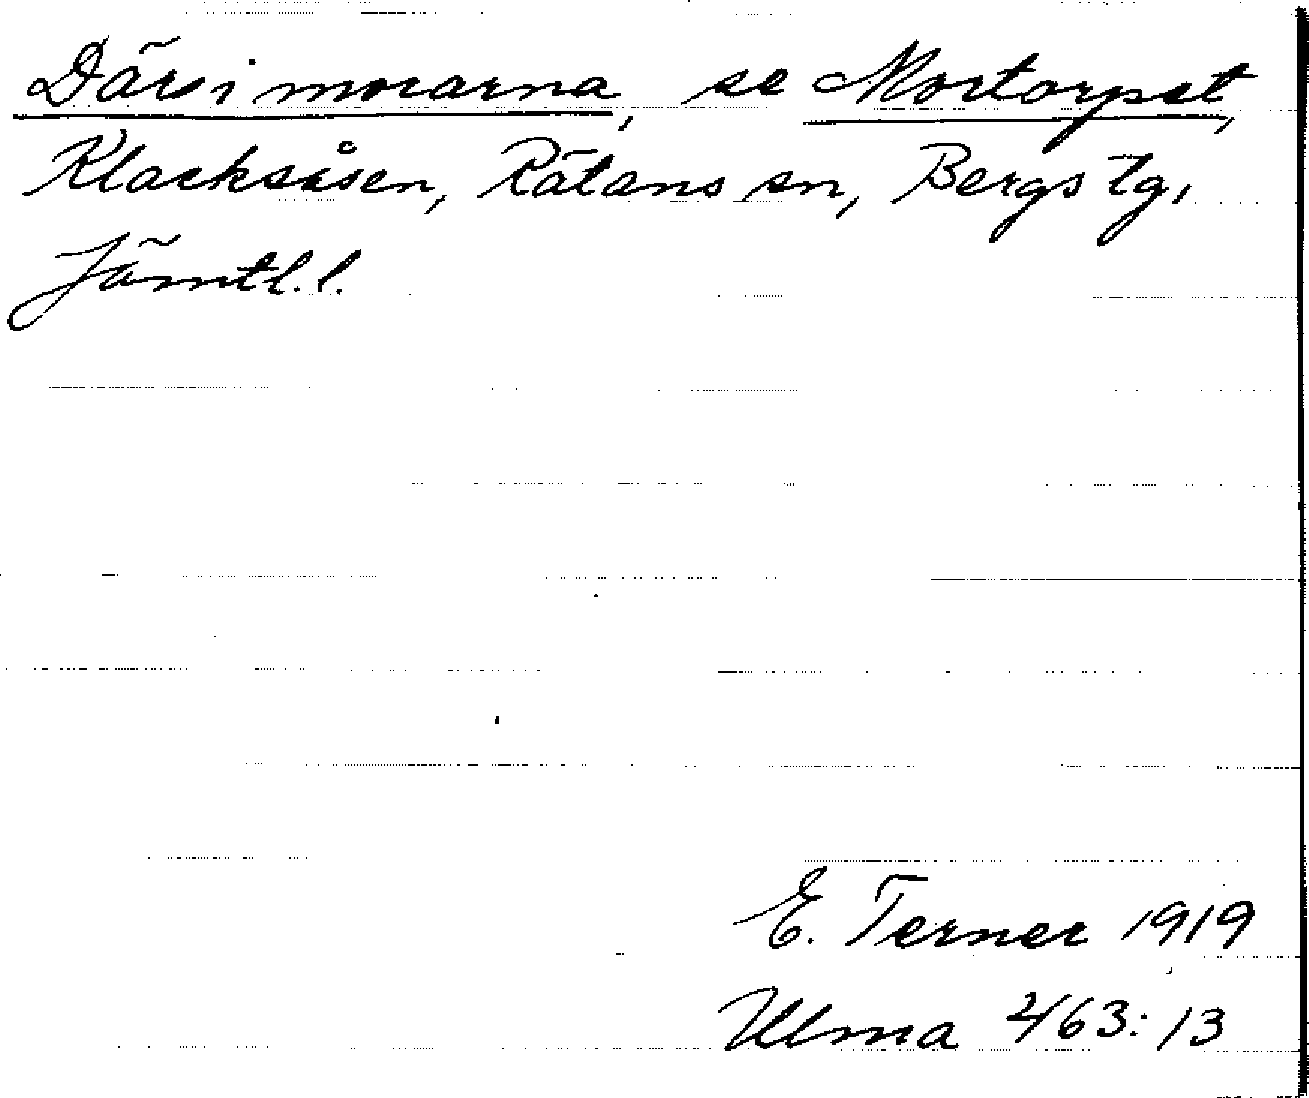 Där i morarna, se Mortorpet,
Klacksåsen, Rätans sn, Bergs tg,
Jämtl. l.
E. Terner 1919
Ulma 463:13